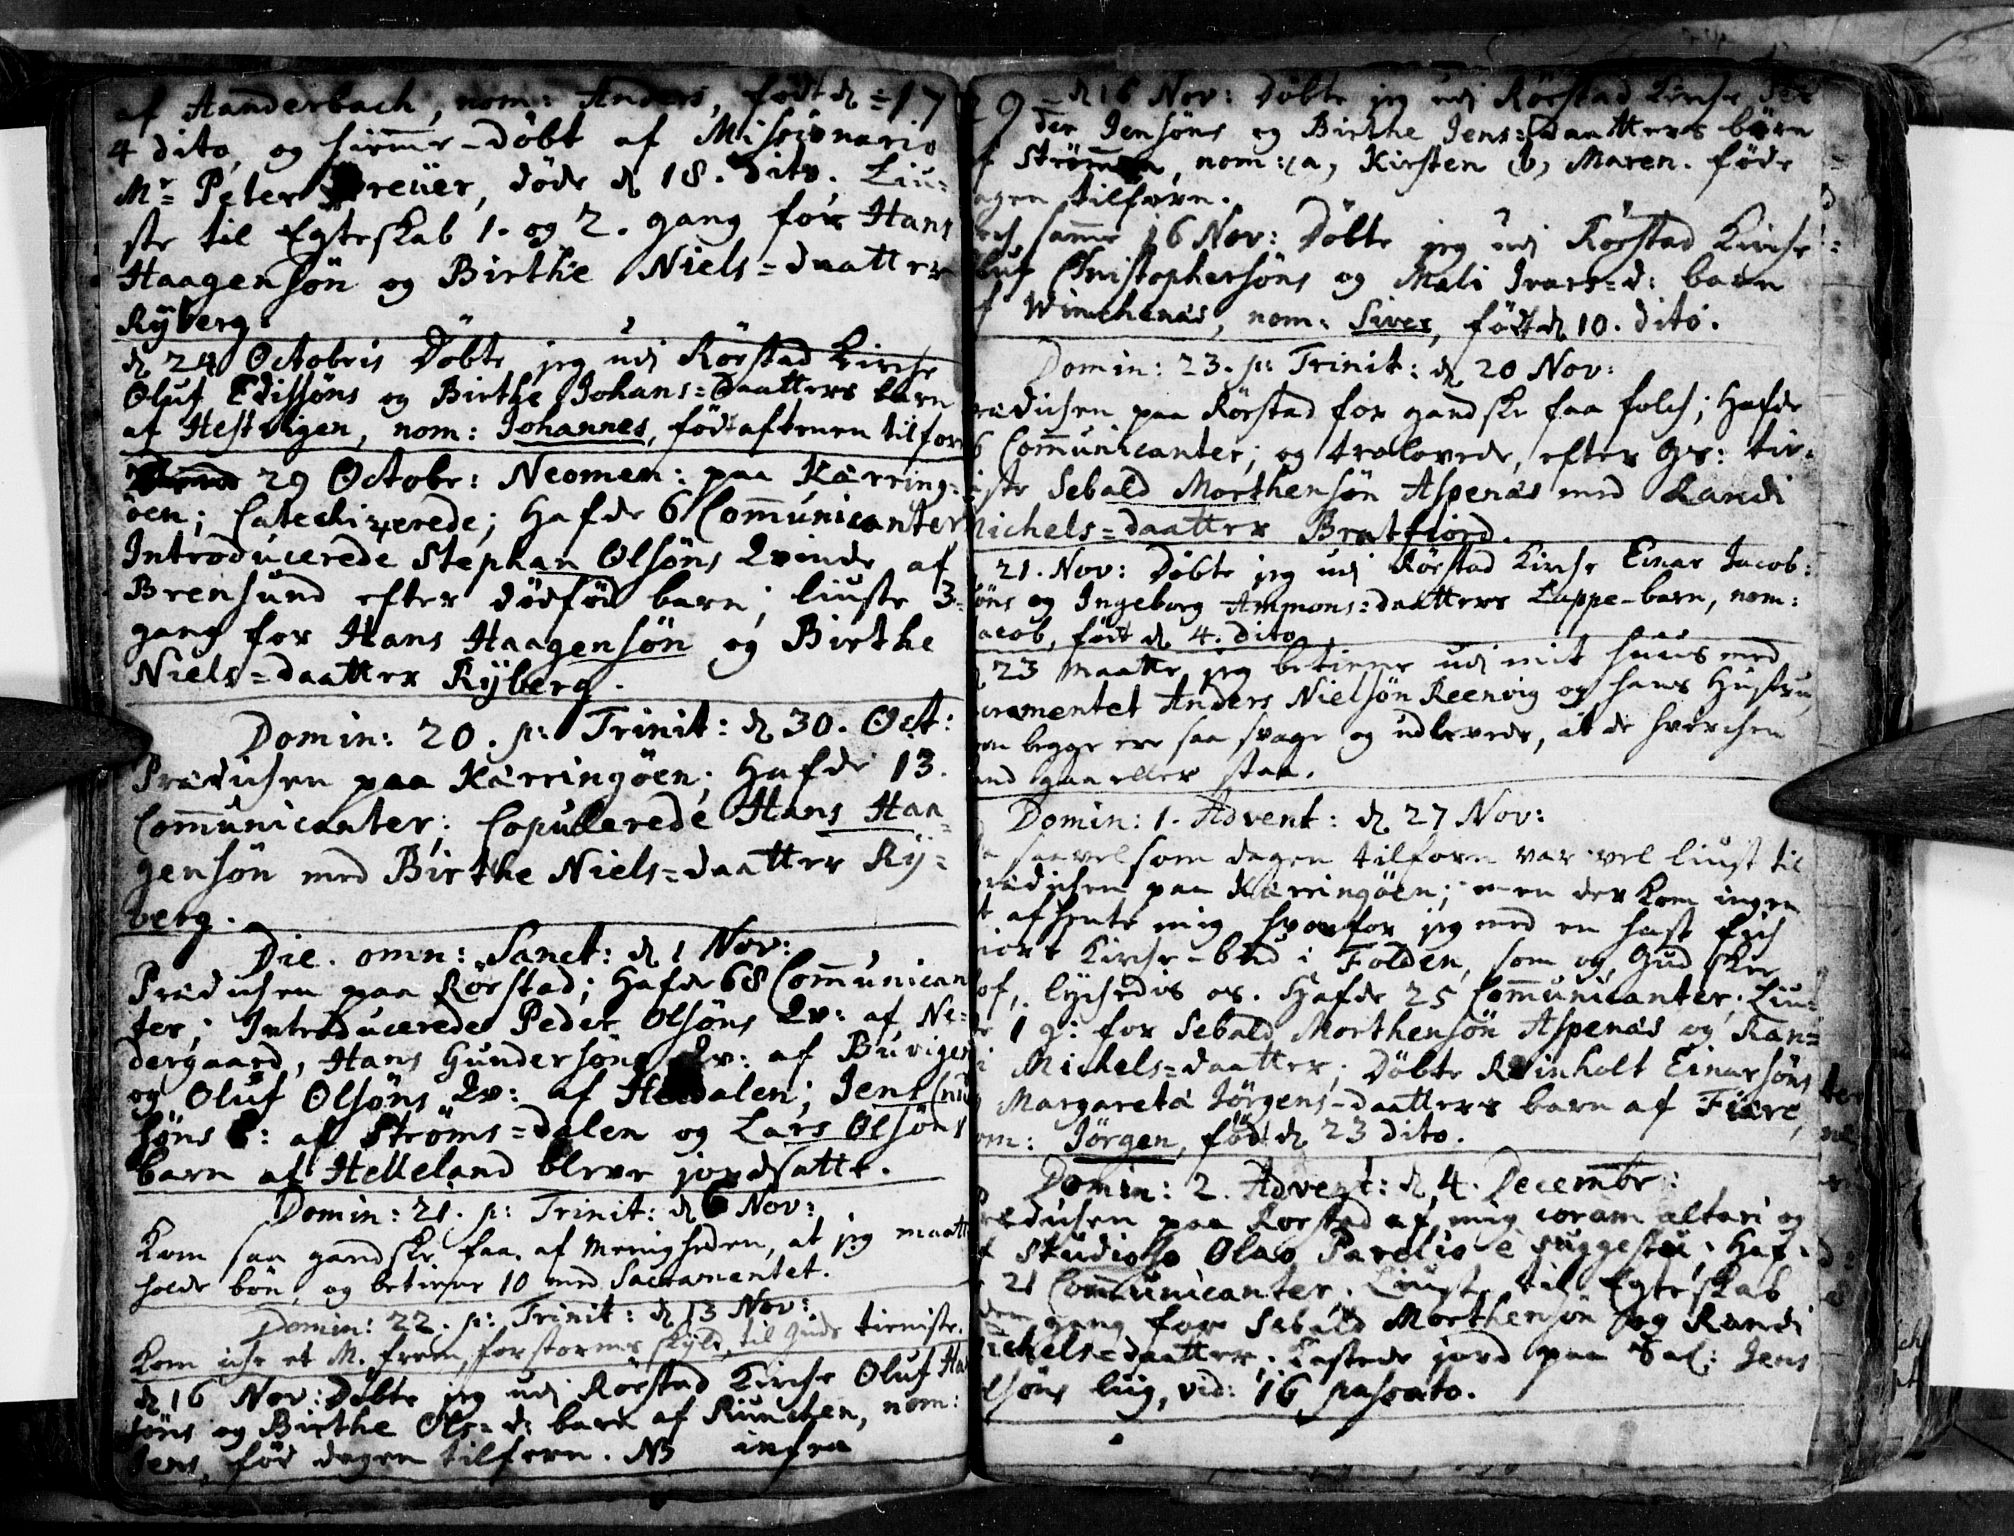 af Handerbach, nom: Anders, født d. 17
4 dito, og hiemme-døbt af Missionario
Mr Peter Dreüer, døde d. 18. dito. Liu-
ste til Egteskab 1. og 2. gang for Hans
Haagensøn og Birthe Niels=daatter
Rÿberg.
d. 24 Octobris Døbte jeg udj Rørstad Kirche
Oluf Edissøns og Birthe Johans=daatters barn
af Hestvigen, nom: Johannes, født aftenen tilforn
29 Octobr: Neomen: paa Kærring-
öen; Catechizerede; Hafde 6 Com̅unicanter
Introducerede Stephan Olsøns Qvinde af
Brensund efter dødfød barn; liuste 3=
gang for Hans Haagensøn og Birthe
Niels=daatter Rÿberg.
Domin: 20. p: Trinit: d. 30. Oct:
Prædichen paa Kærringöen; Hafde 13.
Com̅unicanter; Copulerede Hans Haa=
gensøn med Birthe Niels=daatter Rÿ=
berg.
Die. omn: Sanct: d. 1 Nov:
Prædichen paa Rørstad; Hafde 68 Com̅unican
ter; Introducerede Peder Olsøns Qv: af Ne=
dergaard, Hans Gundersøns Qv: af Buvigen
og Oluf Olsøns Qv: af Heldalen; Jens Cnud
søns b: af Strøms=dalen og Lars Olsøns
barn af Helleland bleve jordsatte.
Domin: 21. p: Trinit: d. 6 Nov:
Kom saa gandske faa af Menigheden, at jeg maatte
holde bøn, og betiene 10 med Sacramentet.
Domin: 22. p: Trinit: d. 13 Nov:
Kom iche et M. frem, for storms skÿld, til Guds tieniste.
d. 16 Nov: Døbte jeg udj Rørstad Kirche Oluf
søns og Birthe Ols=d: barn af Runchen, nom:
Jens, fød dagen tilforn. NB infra
29 = d. 16 Nov: Døbte jeg udj Rørstad Kirche Pe
der Jensøns og Birthe Jens=daatters børn
af Strømmen, nom: a, Kirsten b, Maren. føde
dagen tilforn.
samme 16 Nov: Døbte jeg udj Rørstad Kirche
Oluf Christophersøns og Mali Ivars=d: barn
af Winchenæs, nom: Siver, født d. 10. dito.
Domin: 23. p: Trinit: d. 20 Nov:
Prædichen paa Rørstad for gandske faa folch; Hafde
6 Com̅unicanter; og trolovede, efter Gs: tie-
niste Sebald Morthensøn Aspenæs med Randi
Michels=daatter Bratfiord.
21. Nov: Døbte jeg udj Rørstad Kirche Einar Jacob:
søns og Ingeborg Ammons=daatters Lappe-barn, nom:
Jacob, født d. 4. dito.
23 Maatte jeg betiene udj mit huus med
Sacramentet Anders Nielsøn Reenvig og hans Hustru,
som begge ere saa svage og udlevede, at de hverchen
kand gaa eller staa.
Domin: 1. Advent: d. 27 Nov:
saavel som dagen tilforn var vel liust til
Prædichen paa Kærringöen; men der kom ingen
at afhente mig, hvorfor jeg med en hast fich
giort Kirche-bud i Folden, som og, Gud skee
lof, lÿchedis os. Hafde 25 Com̅unicanter; Liu-
ste 1 g: for Sebald Morthensøn Aspenæs og Ran=
di Michels=daatter; Døbte Reinholt Einersøns
og Margareta Jörgens=daatters barn af Fiære,
nom: Jörgen, fød d. 23 dito.
Domin: 2. Advent: d. 4. Decembr:
Prædichen paa Rørstad af mig coram altari og
af Studioso Olao Parelio è suggestu; Haf-
de 21 Com̅unicanter. Liuste til Egteskab
anden gang for Sebald Morthensøn og Randi
Michels=daatter; Kastede jord paa Sal: Jens
Olsøns liig, vid: 16 passato.